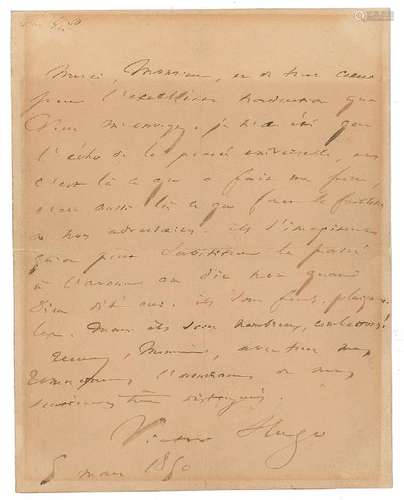 Merci, Monsieur, et de tout cœur
pour l'excellente traduction que
vous m'envoyez. je n'ai été que
l'écho de la pensée universelle, mais
c'est là ce qui a fait ma force,
c'est aussi là ce qui fait la faiblesse
de nos adversaires. ils s'imaginent
qu'on peut substituer le passé
à l'avenir et dire non quand
Dieu dit oui. ils sont fous, plaignons-
les. mais ils sont nombreux, combattons!
Recevez, Monsieur, avec tous mes
remercîments, l'assurance de mes
sentiments très distingués.
Victor Hugo
5 mars 1850